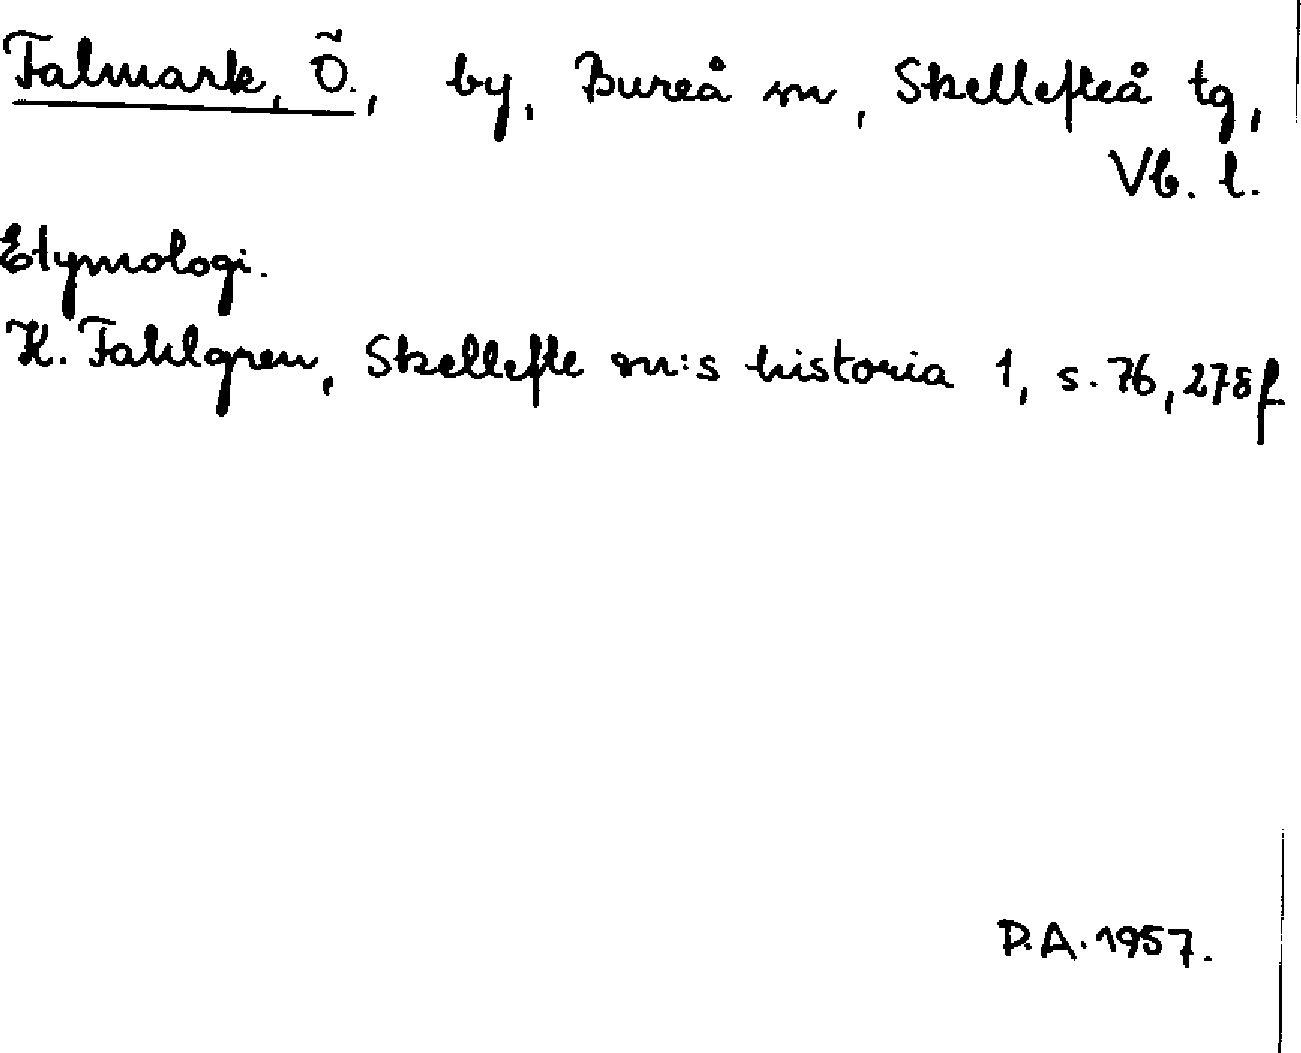 Falmark, Ö., by, Bureå sn, Skellefteå tg,
Vb. l.
Etymologi.
K. Fahlgren, Skellefte sn:s historia 1, s. 76, 278f
D.A. 1957.